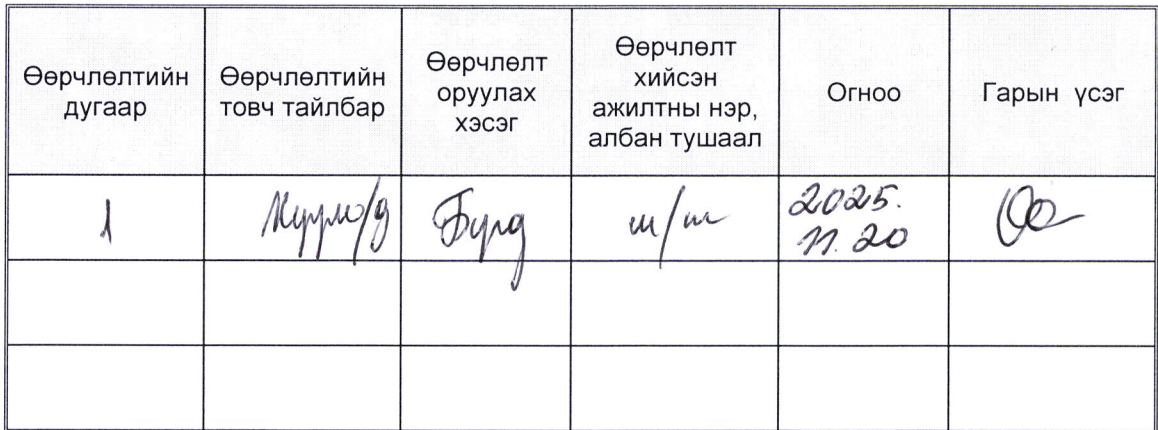 Өөрчлөлтийн дугаар
Өөрчлөлтийн товч тайлбар
Өөрчлөлт оруулах хэсэг
Өөрчлөлт хийсэн ажилтны нэр, албан тушаал
Огноо
Гарын үсэг
1
Бүгд
ш/ш
2025.
11.20